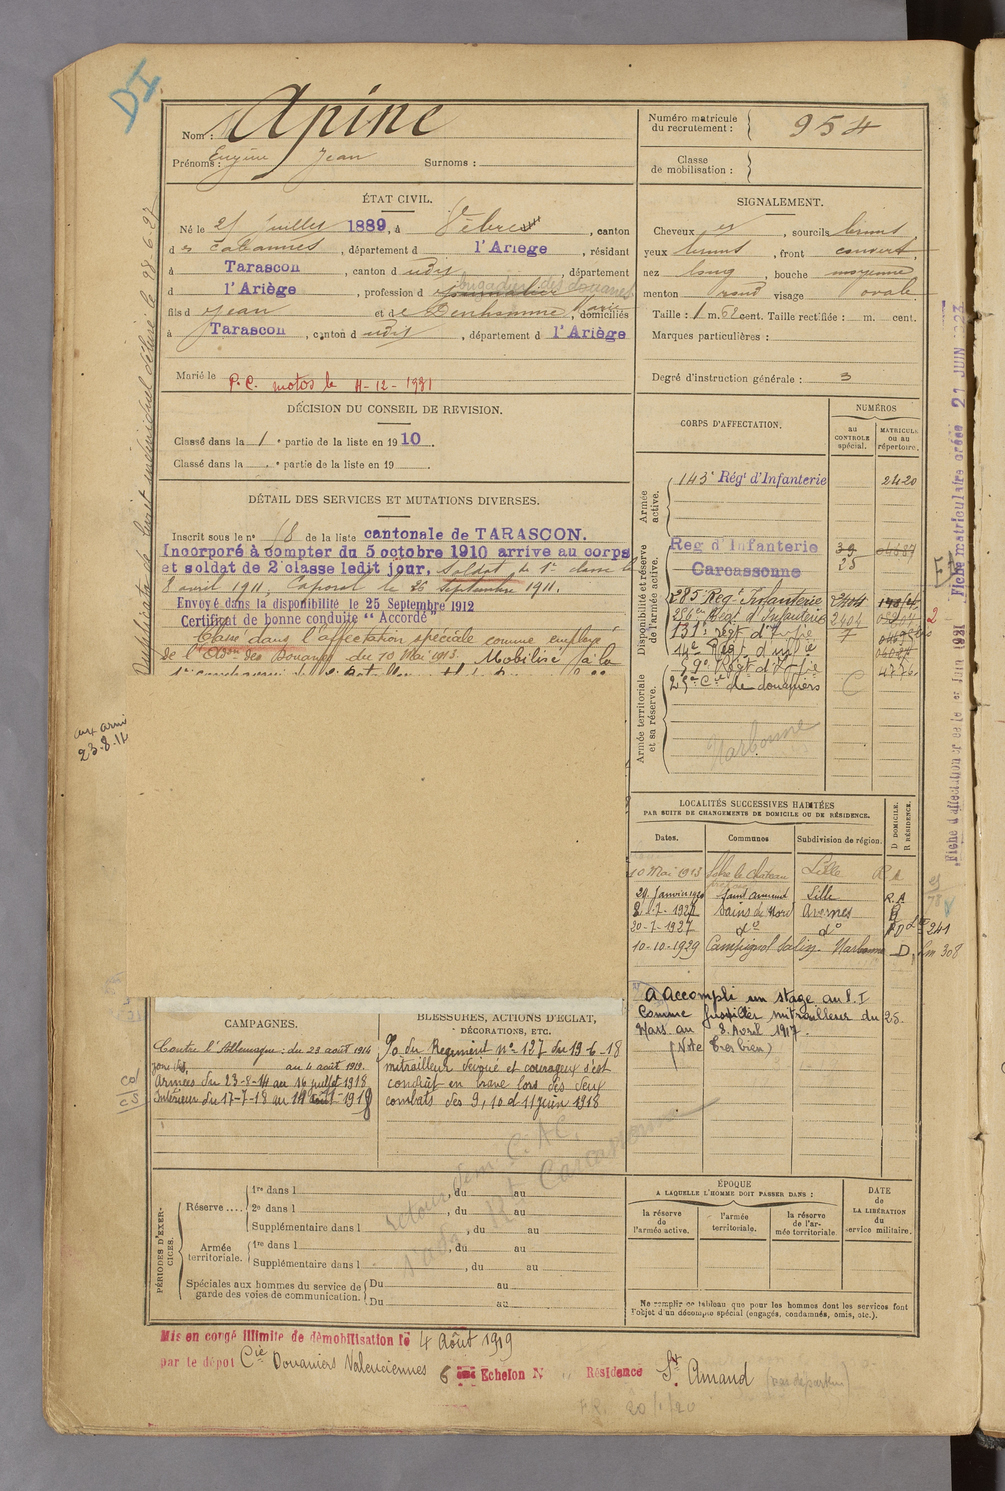 DI
Nom : Apine
Prénoms : Eugène Jean Surnoms :
Numéro matricule du recrutement : 954
Classe de mobilisation :
ÉTAT CIVIL.
Né le 25 juillet 1889, à Vèbre, canton
des Cabannes, département d l'Ariège, résidant
à Tarascon, canton d udit, département
d l'Ariège, profession d journalier brigadier des douanes
fils d Jean et de Denhomme Marie, domiciliés
à Tarascon, canton d udit, département d l'Ariège
Marié le
P.C. motos le 11-12-1931
SIGNALEMENT.
Cheveux , sourcils bruns
yeux bruns, front couvert,
nez long, bouche moyenne
menton rond visage ovale.
Taille : 1 m. 62 cent. Taille rectifiée : m. cent.
Marques particulières :
Degré d'instruction générale : 3
DÉCISION DU CONSEIL DE REVISION.
Classé dans la 1e partie de la liste en 1910.
Classé dans la e partie de la liste en 19
DÉTAIL DES SERVICES ET MUTATIONS DIVERSES.
Inscrit sous le n° 18 de la liste cantonale de TARASCON.
Incorporé à compter du 5 octobre 1910 arrive au corps
et soldat de 2e classe ledit jour, Soldat de 1e classe le
8 avril 1911, Caporal le 25 septembre 1911.
Envoyé dans la disponibilité le 25 Septembre 1912
Certificat de bonne conduite “ Accordé ”
Classé dans l'affectation spéciale comme employé
de l'Adon des Douanes du 10 Mai 1913. Mobilisé à la
CORPS D'AFFECTATION.
NUMÉROS
au CONTROLE spécial.
MATRICULE ou au répertoire.
Armée active.
143e Régt d'Infanterie 2420
Disponibilité et réserve de l'armée active.
Reg d'Infanterie 39
Carcassonne 25
285e Regt Infanterie 2404
286eme Régt d'Infanterie 2404
131e régt d'Infie
14e Régt d'Infie
59e Régt d'Infie
Armée territoriale et sa réserve.
25e Cie de douaniers C
Narbonne
LOCALITÉS SUCCESSIVES HABITÉES
PAR SUITE DE CHANGEMENTS DE DOMICILE OU DE RÉSIDENCE.
Dates. Communes Subdivision de région. D DOMICILE. R RÉSIDENCE.
10 Mai 1913 Solre le Château Lille
29 Janvier 1920 Saint Amand Lille R.A
1927 Sains du Nord Avesnes
20-7-1927 do do
10-10-1929 Campignol Salin Narbonne D
A Accompli un stage au
Comme fusilier mitrailleur du 25
Mars au 8 Avril 1917.
(Note très bien)
aux armé
23-8-14
CAMPAGNES.
Contre l'Allemagne : du 23 août 1914
au 4 août 1919.
Armées du 23-8-14 au 16 juillet 1918
Intérieur du 17-7-18 au
BLESSURES, ACTIONS D'ÉCLAT,
DÉCORATIONS, ETC.
O du Régiment n° 137 du 19-6-18
mitrailleur dévoué et courageux s'est
conduit en brave lors des deux
combats des 9, 10 et 11 juin 1918
PÉRIODES D'EXERCICES.
Réserve .... 1re dans l , du au
2e dans l , du au
Supplémentaire dans l , du au
Armée territoriale. 1re dans l , du au
Supplémentaire dans l , du au
Spéciales aux hommes du service de garde des voies de communication. Du au
Du au
Carcassonne
ÉPOQUE
A LAQUELLE L'HOMME DOIT PASSER DANS :
la réserve de l'armée active.
l'armée territoriale.
la réserve de l'armée territoriale.
DATE de LA LIBÉRATION du service militaire.
Ne remplir ce tableau que pour les hommes dont les services font
l'objet d'un décompte spécial (engagés, condamnés, omis, etc.).
Mis en congé illimité de démobilisation le 4 Août 1919
par le dépot Cie Douaniers Valenciennes 6 ème Echelon N Résidence St Amand
20/1/20
Duplicata de livret individuel délivré le 28-6-27
Fiche matriculaire créée 21 JUIN 1933
Fiche d'affectation créée le 1er Juin 1931